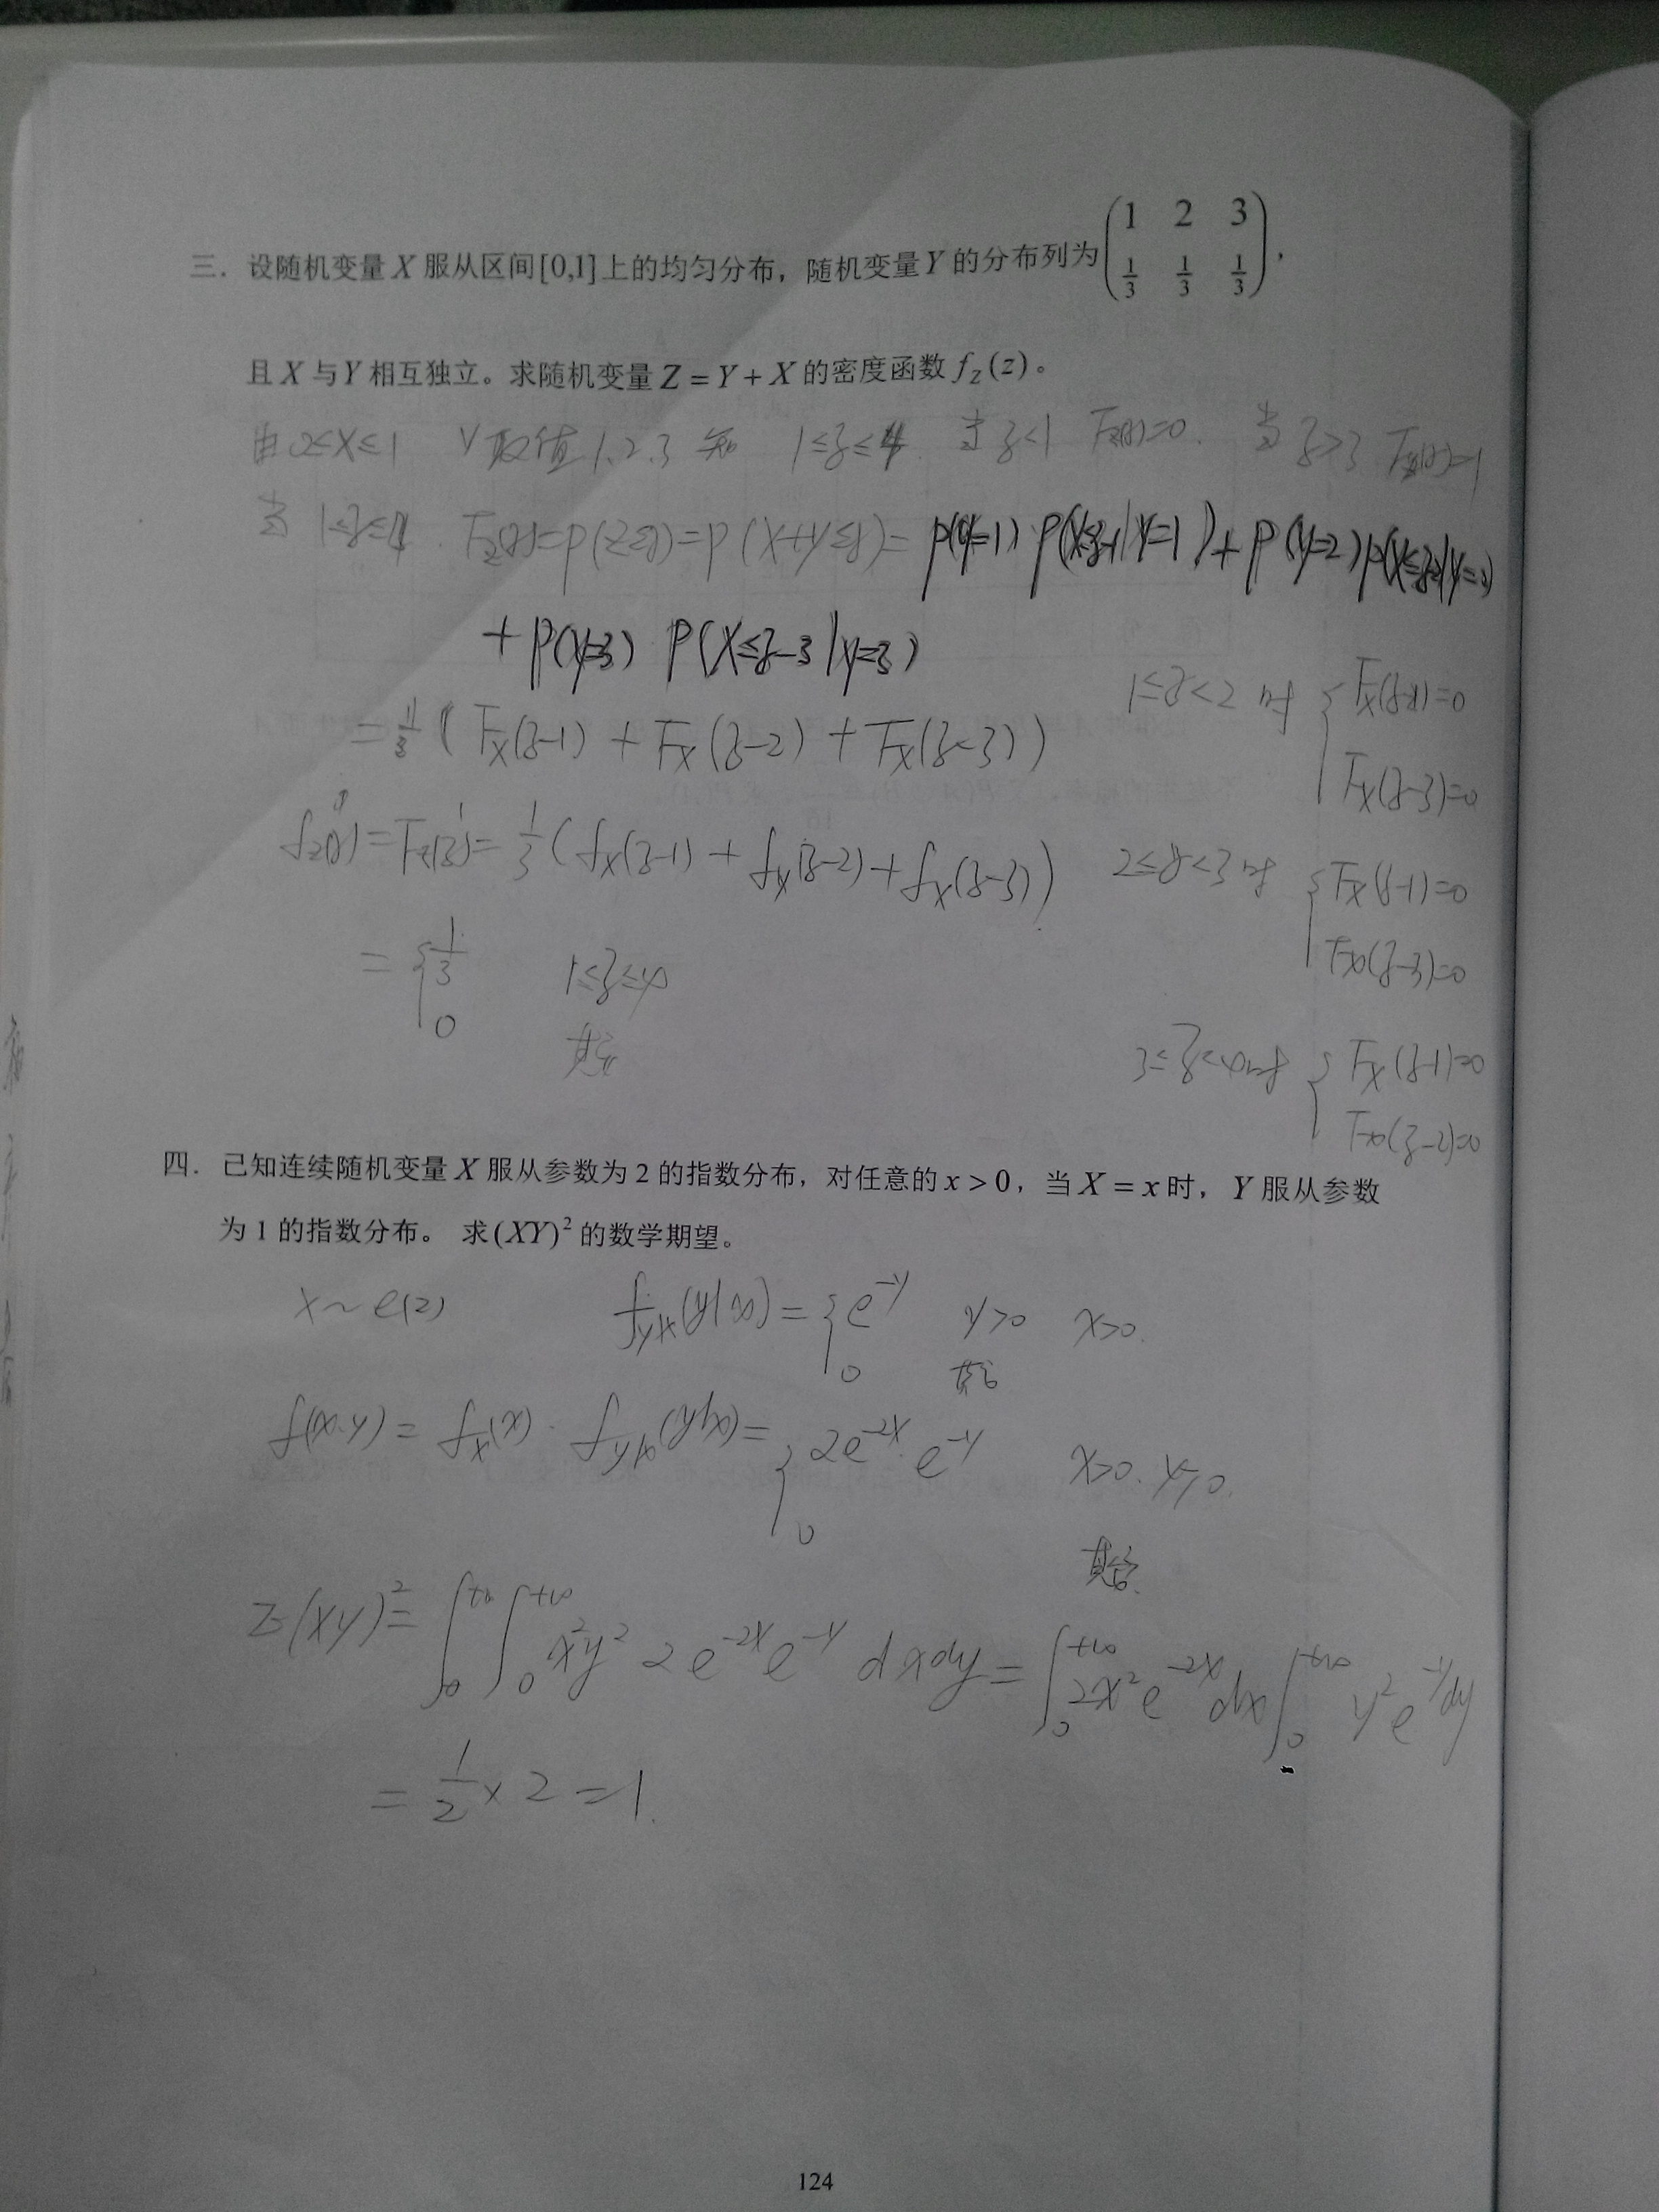 三. 设随机变量 X 服从区间[0,1]上的均匀分布，随机变量Y 的分布列为 (1 2 3; 1/3 1/3 1/3)，
且 X 与Y 相互独立。求随机变量 Z = Y + X 的密度函数 f_Z(z)。
由 0≤X≤1 Y取值1.2.3 知 1≤z≤4. 当 z<1 F_Z(z)=0. 当 z>3 F_Z(z)=1
当 1≤z≤4. F_Z(z)=P(Z≤z)=P(X+Y≤z)= P(Y=1) P(X≤z-1|Y=1)+P(Y=2)P(X≤z-2|Y=2)
+ P(Y=3) P(X≤z-3|Y=3)
= 1/3 ( F_X(z-1) + F_X(z-2) + F_X(z-3) )
1≤z<2 时 { F_X(z-2)=0
F_X(z-3)=0
f_Z(z)=F_Z(z)'= 1/3 ( f_X(z-1) + f_X(z-2) + f_X(z-3) )
2≤z<3 时 { F_X(z-1)=0
F_X(z-3)=0
= { 1/3 1≤z≤4
0 其它
3≤z<4时 { F_X(z-1)=0
F_X(z-2)=0
四. 已知连续随机变量 X 服从参数为 2 的指数分布，对任意的 x > 0，当 X = x 时，Y 服从参数
为 1 的指数分布。 求 (XY)² 的数学期望。
X ~ e(2) f_{Y|X}(y|x) = { e^{-y} y>0 x>0.
0 其它
f(x.y) = f_X(x) · f_{Y|X}(y|x) = { 2e^{-2x}·e^{-y} x>0. y>0.
0 其它.
E(XY)² = ∫_0^{+∞} ∫_0^{+∞} x²y² 2e^{-2x}e^{-y} dxdy = ∫_0^{+∞} 2x²e^{-2x}dx ∫_0^{+∞} y²e^{-y}dy
= 1/2 × 2 = 1.
124